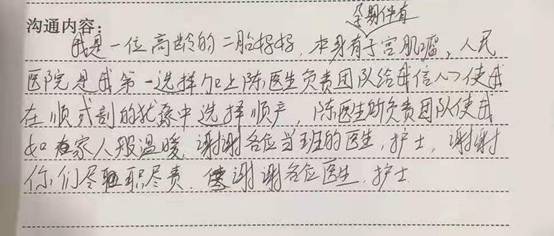 沟通内容:
孕期伴有
我是一位高龄的二胎妈妈,本身有子宫肌瘤,人民
医院是我第一选择,加上陈医生负责团队给我信心使我
在顺或剖的犹豫中选择顺产,陈医生的负责团队使我
如在家人般温暖,谢谢各位当班的医生,护士,谢谢
你们尽职尽责,谢谢各位医生,护士